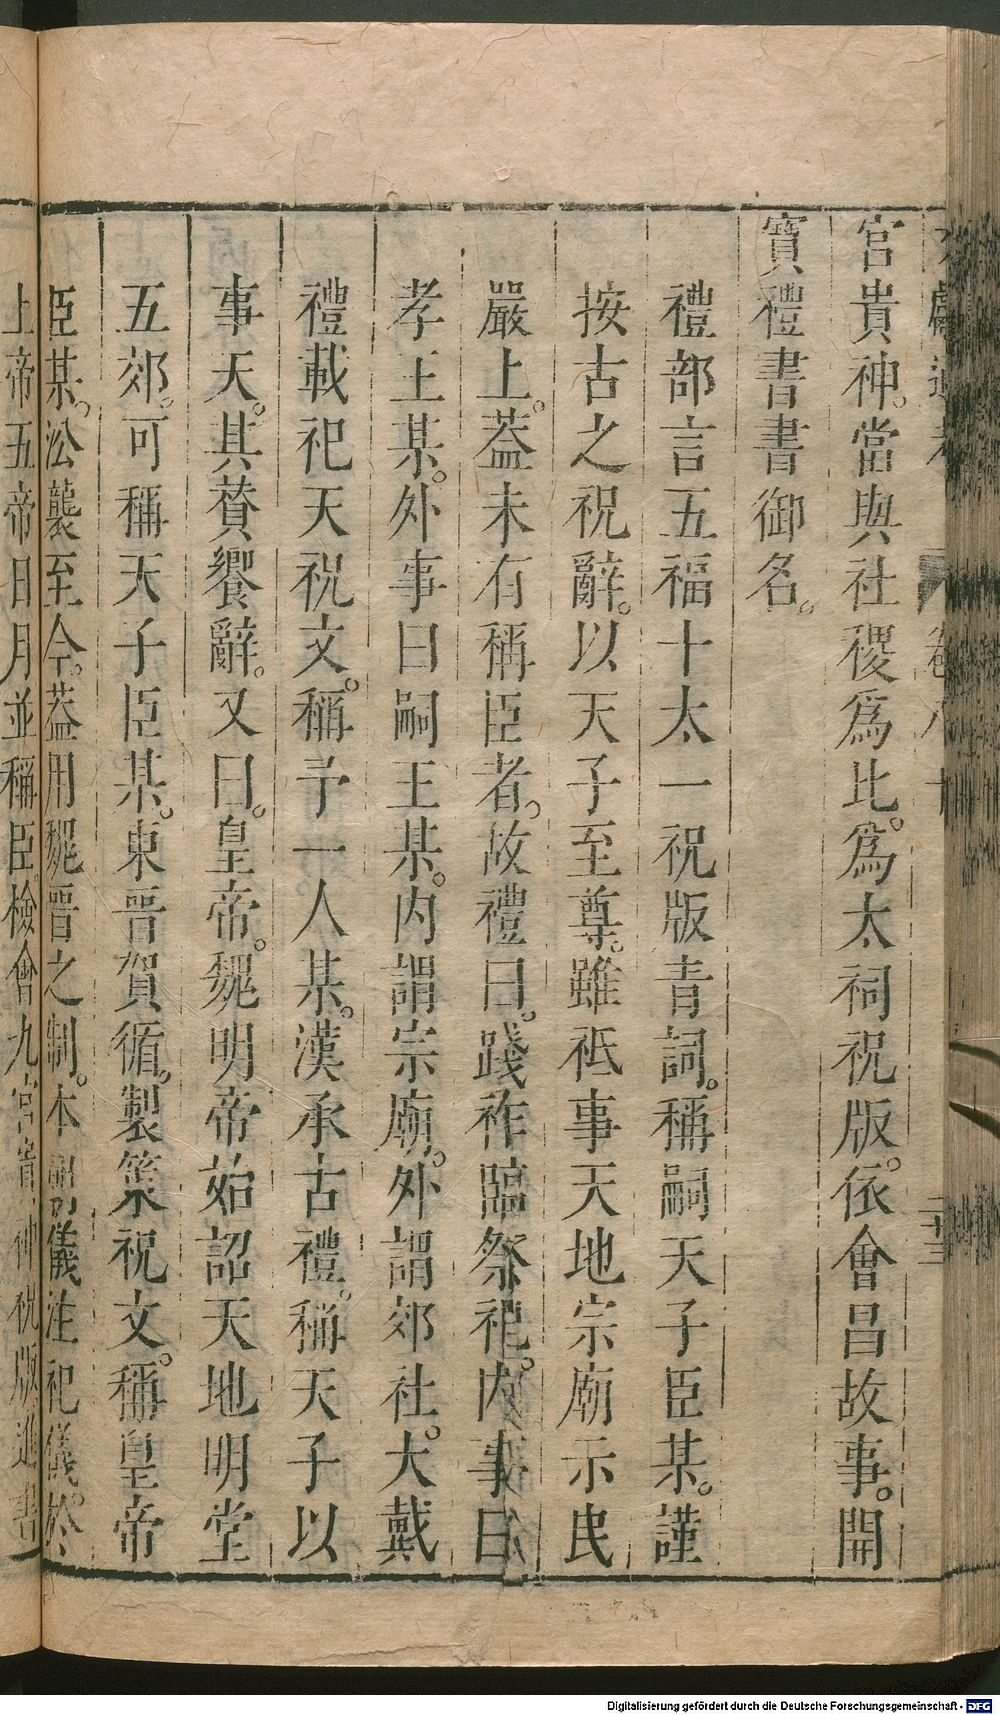 宮貴神。當與社稷爲比。爲太祠祝版。依會昌故事。開
寳禮書書御名。
禮部言五福十太一祝版青詞。稱嗣天子臣某。謹
按古之祝辭。以天子至尊。雖祗事天地宗廟示民
嚴上。葢未有稱臣者。故禮曰。踐祚臨祭祀。内事曰
孝王某。外事曰嗣王某。内謂宗廟。外謂郊社。大戴
禮載祀天祝文。稱予一人某。漢承古禮。稱天子以
事天。其賛饗辭。又曰。皇帝。魏明帝始詔天地明堂
五郊。可稱天子臣某。東晋賀循。製策祝文。稱皇帝
臣某。㳂襲至今。葢用魏晋之制。本朝儀注祀儀。於
上帝五帝日月並稱臣。檢會九宮貴神祝版進書
卷八十
二十三
Digitalisierung gefördert durch die Deutsche Forschungsgemeinschaft - DFG